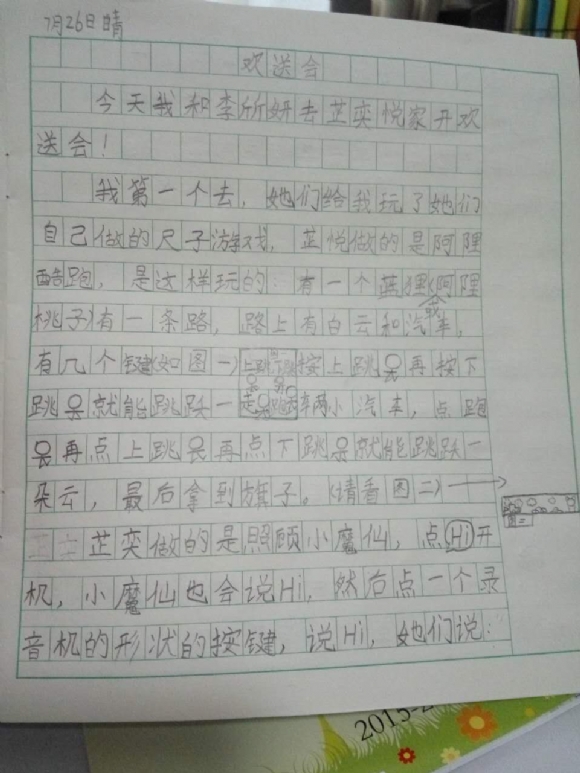 7月26日晴
欢送会
今天我和李斤妍去芷奕悦家开欢
送会！
我第一个去，她们给我玩了她们
自己做的尺子游戏，芷悦做的是阿狸
酷跑，是这样玩的：有一个蓝狸（阿狸
或
桃子）有一条路，路上有白云和汽车，
有几个键（如图一）按上跳 再按下
跳 就能跳跃一 两小汽车，点跑
再点上跳 再点下跳 就能跳跃一
朵云，最后拿到旗子。（请看图二）
芷奕做的是照顾小魔仙，点Hi开
机，小魔仙也会说Hi，然后点一个录
音机的形状的按键，说Hi，她们说：
2015-2